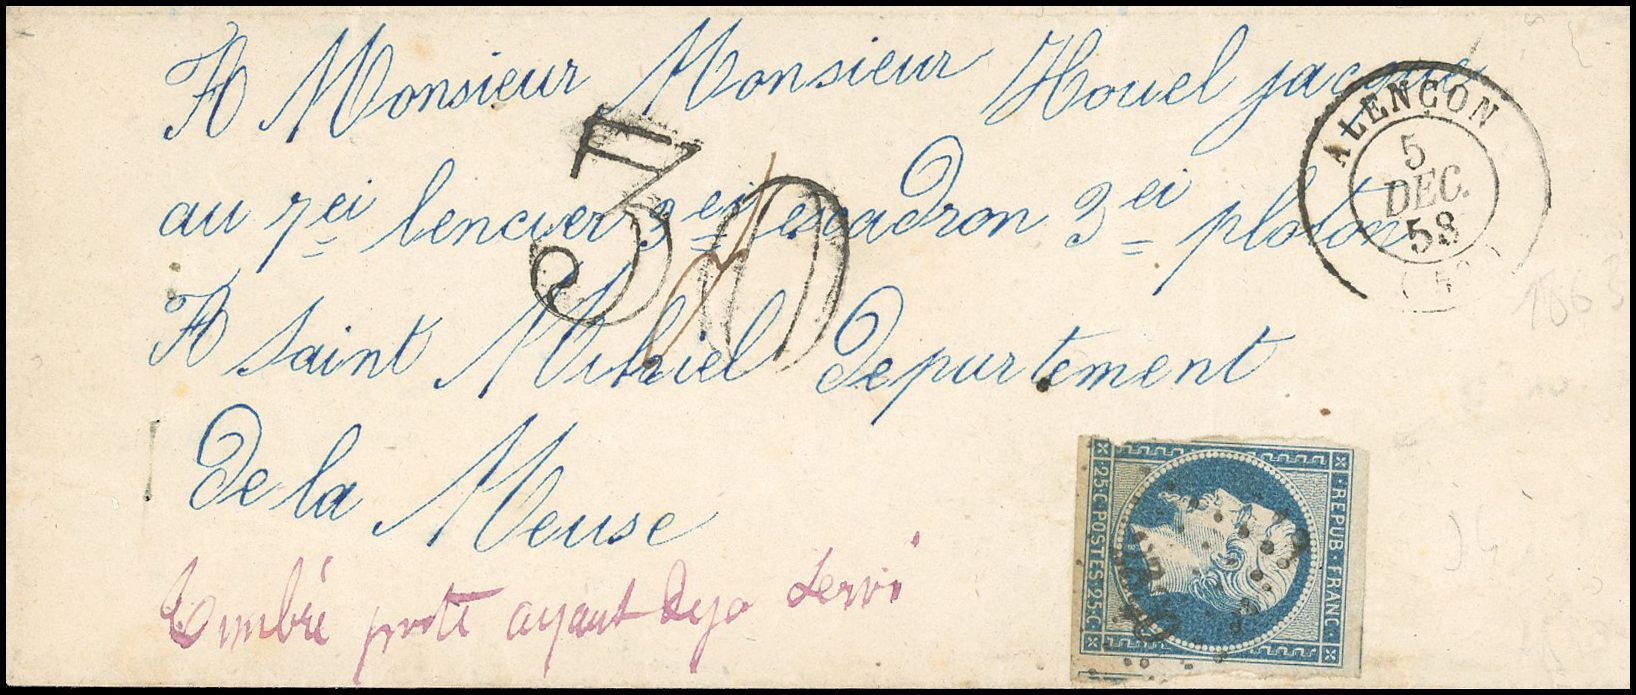 A Monsieur Monsieur Houel jacque
au 7ei lencier 3ei escadron 3ei ploton
A Saint Mihiel Departement
De la Meuse
timbre poste ayant deja servi
30
ALENÇON
5
DEC.
58
REPUB·FRANC·
25·C·POSTES·25·C·
1863